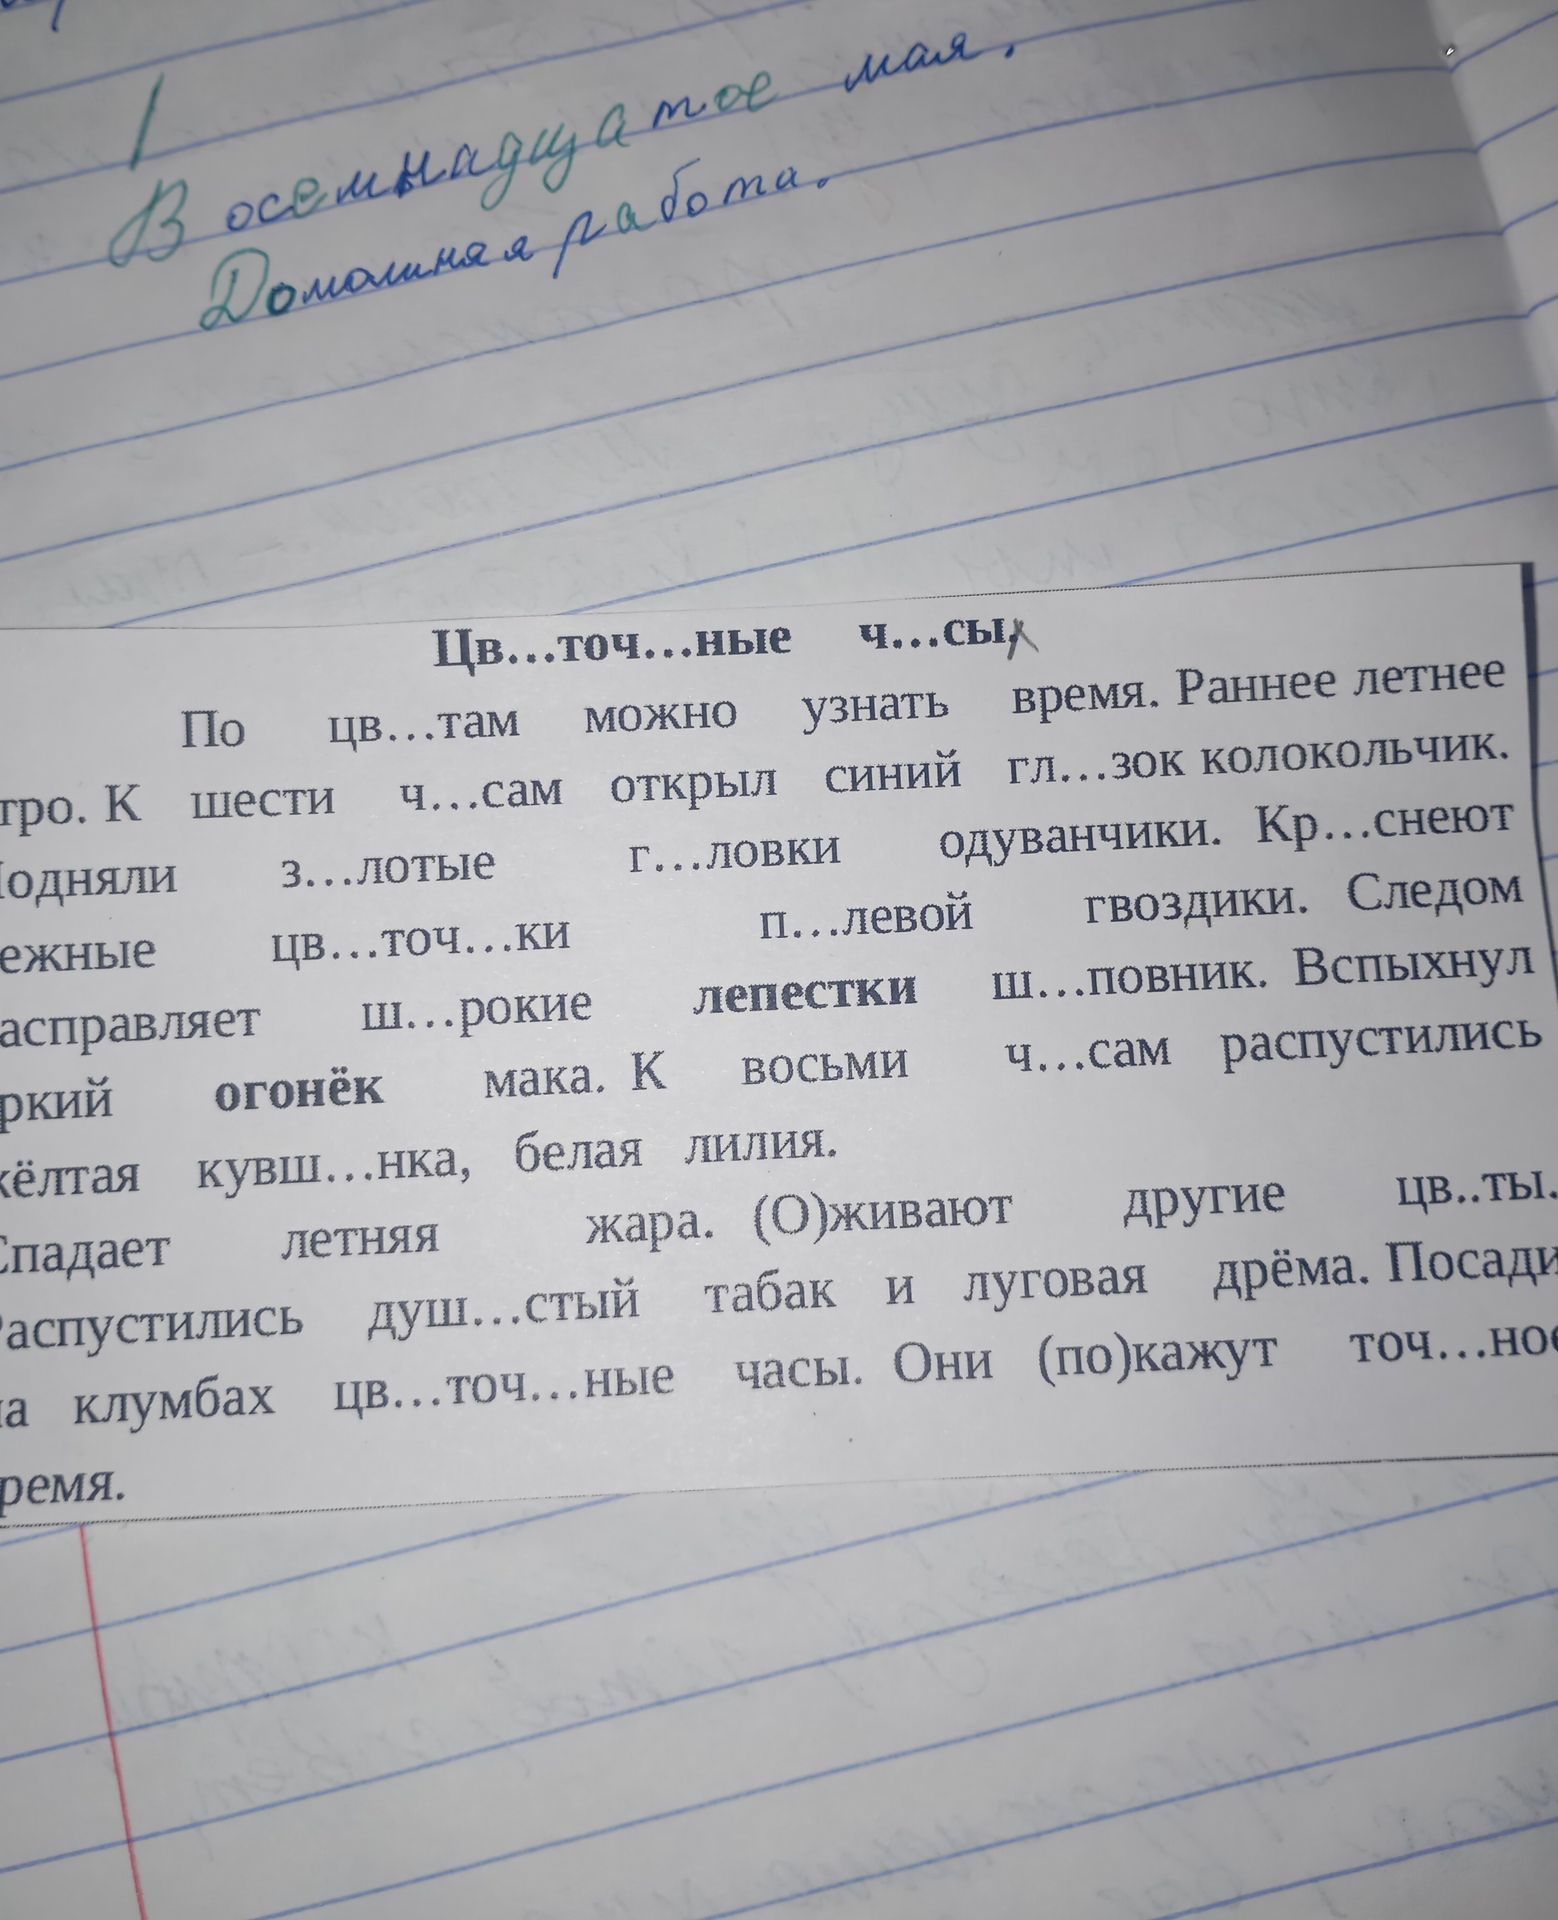 Восемнадцатое мая.
Домашняя работа.
Цв…точ…ные ч…сы
По цв…там можно узнать время. Раннее летнее
тро. К шести ч…сам открыл синий гл…зок колокольчик.
Подняли з…лотые г…ловки одуванчики. Кр…снеют
ежные цв…точ…ки п…левой гвоздики. Следом
асправляет ш…рокие лепестки ш…повник. Вспыхнул
ркий огонёк мака. К восьми ч…сам распустились
жёлтая кувш…нка, белая лилия.
Спадает летняя жара. (О)живают другие цв..ты.
Распустились душ…стый табак и луговая дрёма. Посади
на клумбах цв…точ…ные часы. Они (по)кажут точ…ное
ремя.